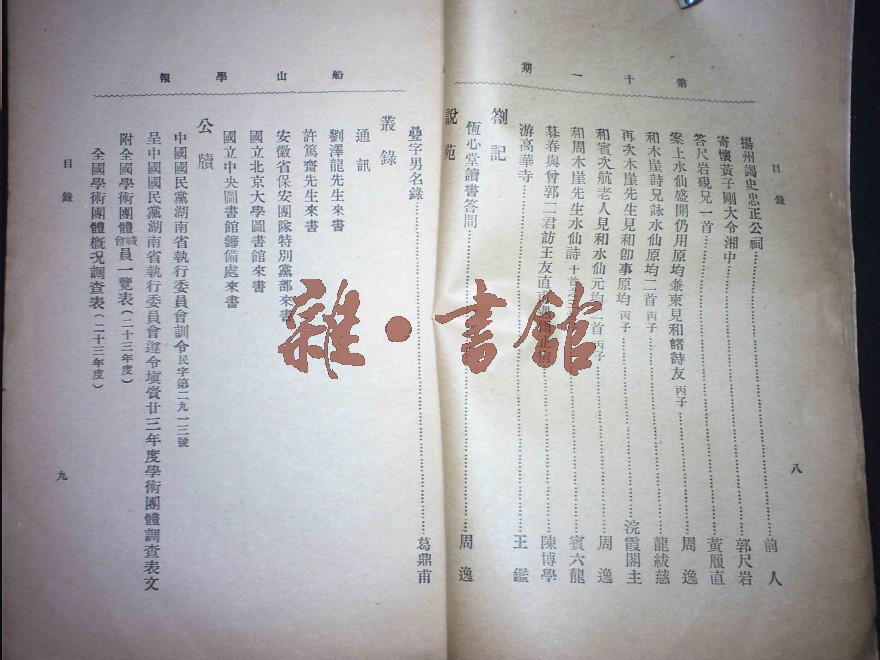 第十一期
目錄
揚州謁史忠正公祠 前人
寄懷黃子剛大令湘中 郭尺岩
答尺岩硯兄一首 黃履直
案上水仙盛開仍用原均兼柬見和諸詩友 丙子 周逸
和木崖詩兄詠水仙原均二首 丙子 龍紱慈
再次木崖先生見和卽事原均 丙子 浣霞閣主
和賓次航老人見和水仙元均二首 丙子 周逸
和周木崖先生水仙詩十首 賓六龍
暮春與曾郭二君訪王友直 陳博學
游高華寺 王鑑
劄記
恆心堂讀書答問 周逸
八
船山學報
說苑
疊字男名錄 葛鼎甫
叢錄
通訊
劉澤龍先生來書
許篤齋先生來書
安徽省保安團隊特別黨部來書
國立北京大學圖書館來書
國立中央圖書館籌備處來書
公牘
中國國民黨湖南省執行委員會訓令民字第二九一三號
呈中國國民黨湖南省執行委員會遵令填賫廿三年度學術團體調查表文
附全國學術團體職會員一覽表(二十三年度)
全國學術團體概況調查表(二十三年度)
目錄
九
雜·書館